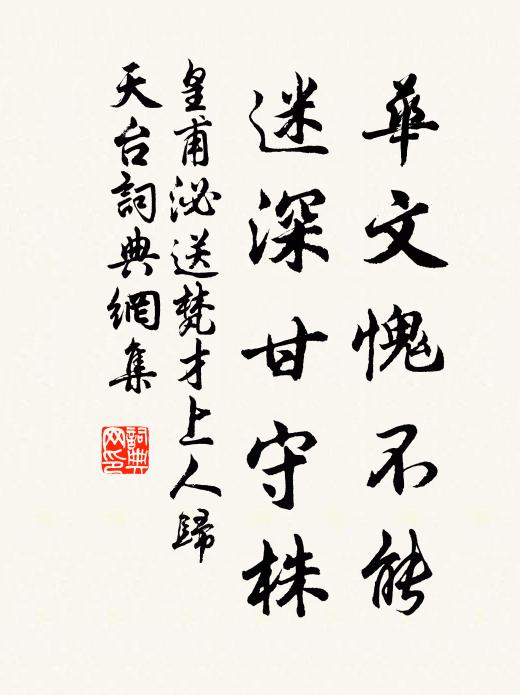 華文愧不能
迷深甘守株
皇甫泌送梵才上人歸
天台詞典網集
詞典網印